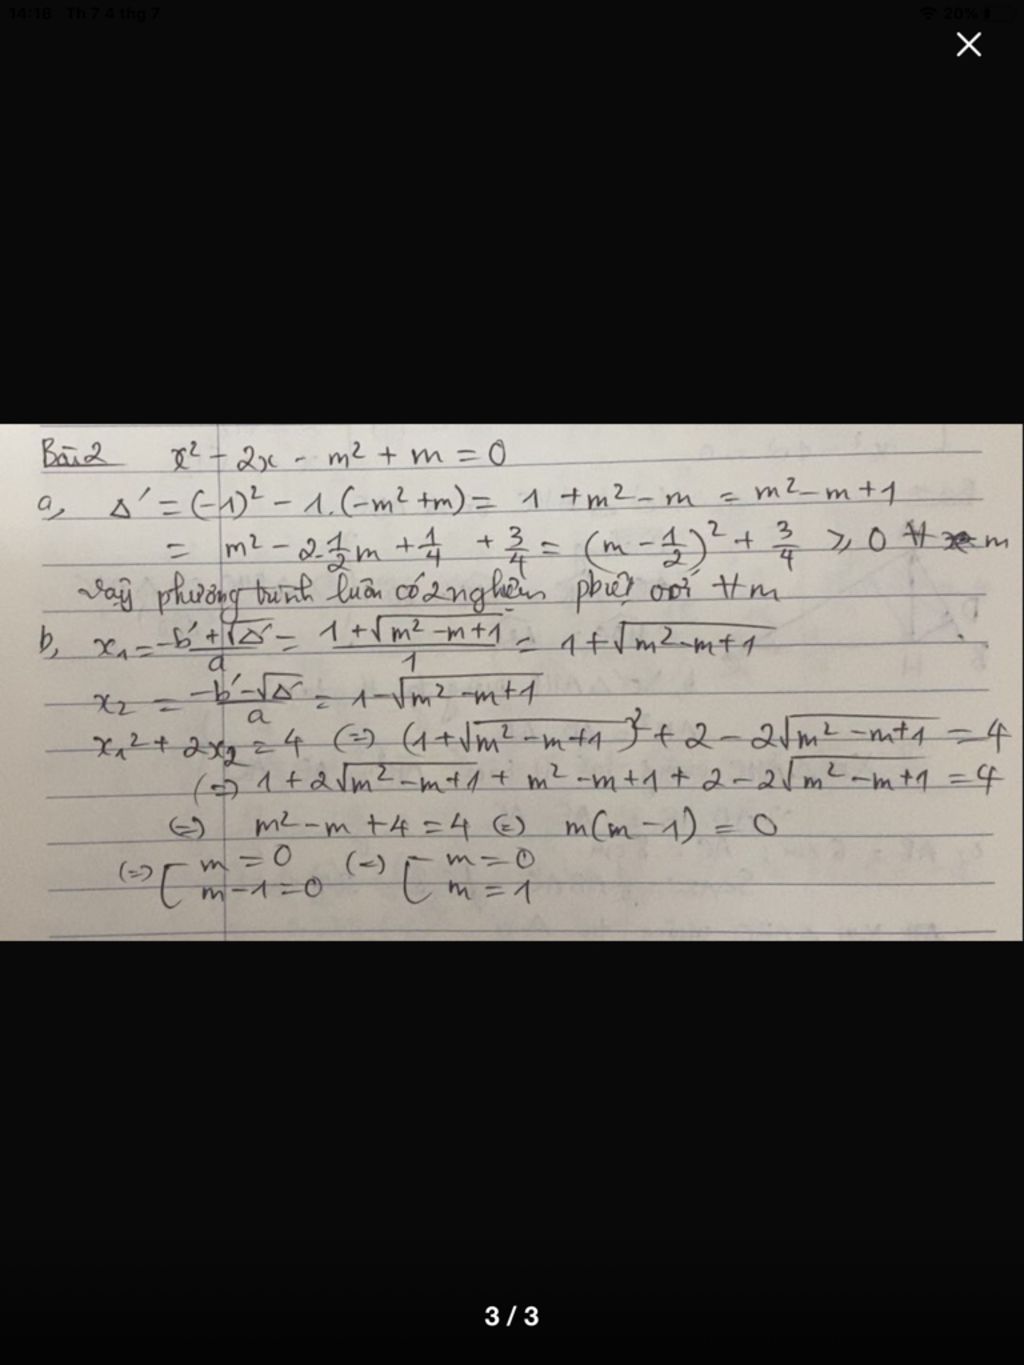 14:18 Th 7 4 thg 7
20%
Bài 2 x² - 2x - m² + m = 0
a, Δ' = (-1)² - 1.(-m² + m) = 1 + m² - m = m² - m + 1
= m² - 2.1/2m + 1/4 + 3/4 = (m - 1/2)² + 3/4 ⩾ 0 ∀ m
Vậy phương trình luôn có 2 nghiệm pbiệt với ∀m
b, x₁ = -b' + √Δ'/a = 1 + √m² - m + 1/1 = 1 + √m² - m + 1
x₂ = -b' - √Δ'/a = 1 - √m² - m + 1
x₁² + 2x₂ = 4 (=) (1 + √m² - m + 1)² + 2 - 2√m² - m + 1 = 4
(=) 1 + 2√m² - m + 1 + m² - m + 1 + 2 - 2√m² - m + 1 = 4
(=) m² - m + 4 = 4 (=) m(m - 1) = 0
(=) [ m = 0 (=) [ m = 0
m - 1 = 0 m = 1
3 / 3